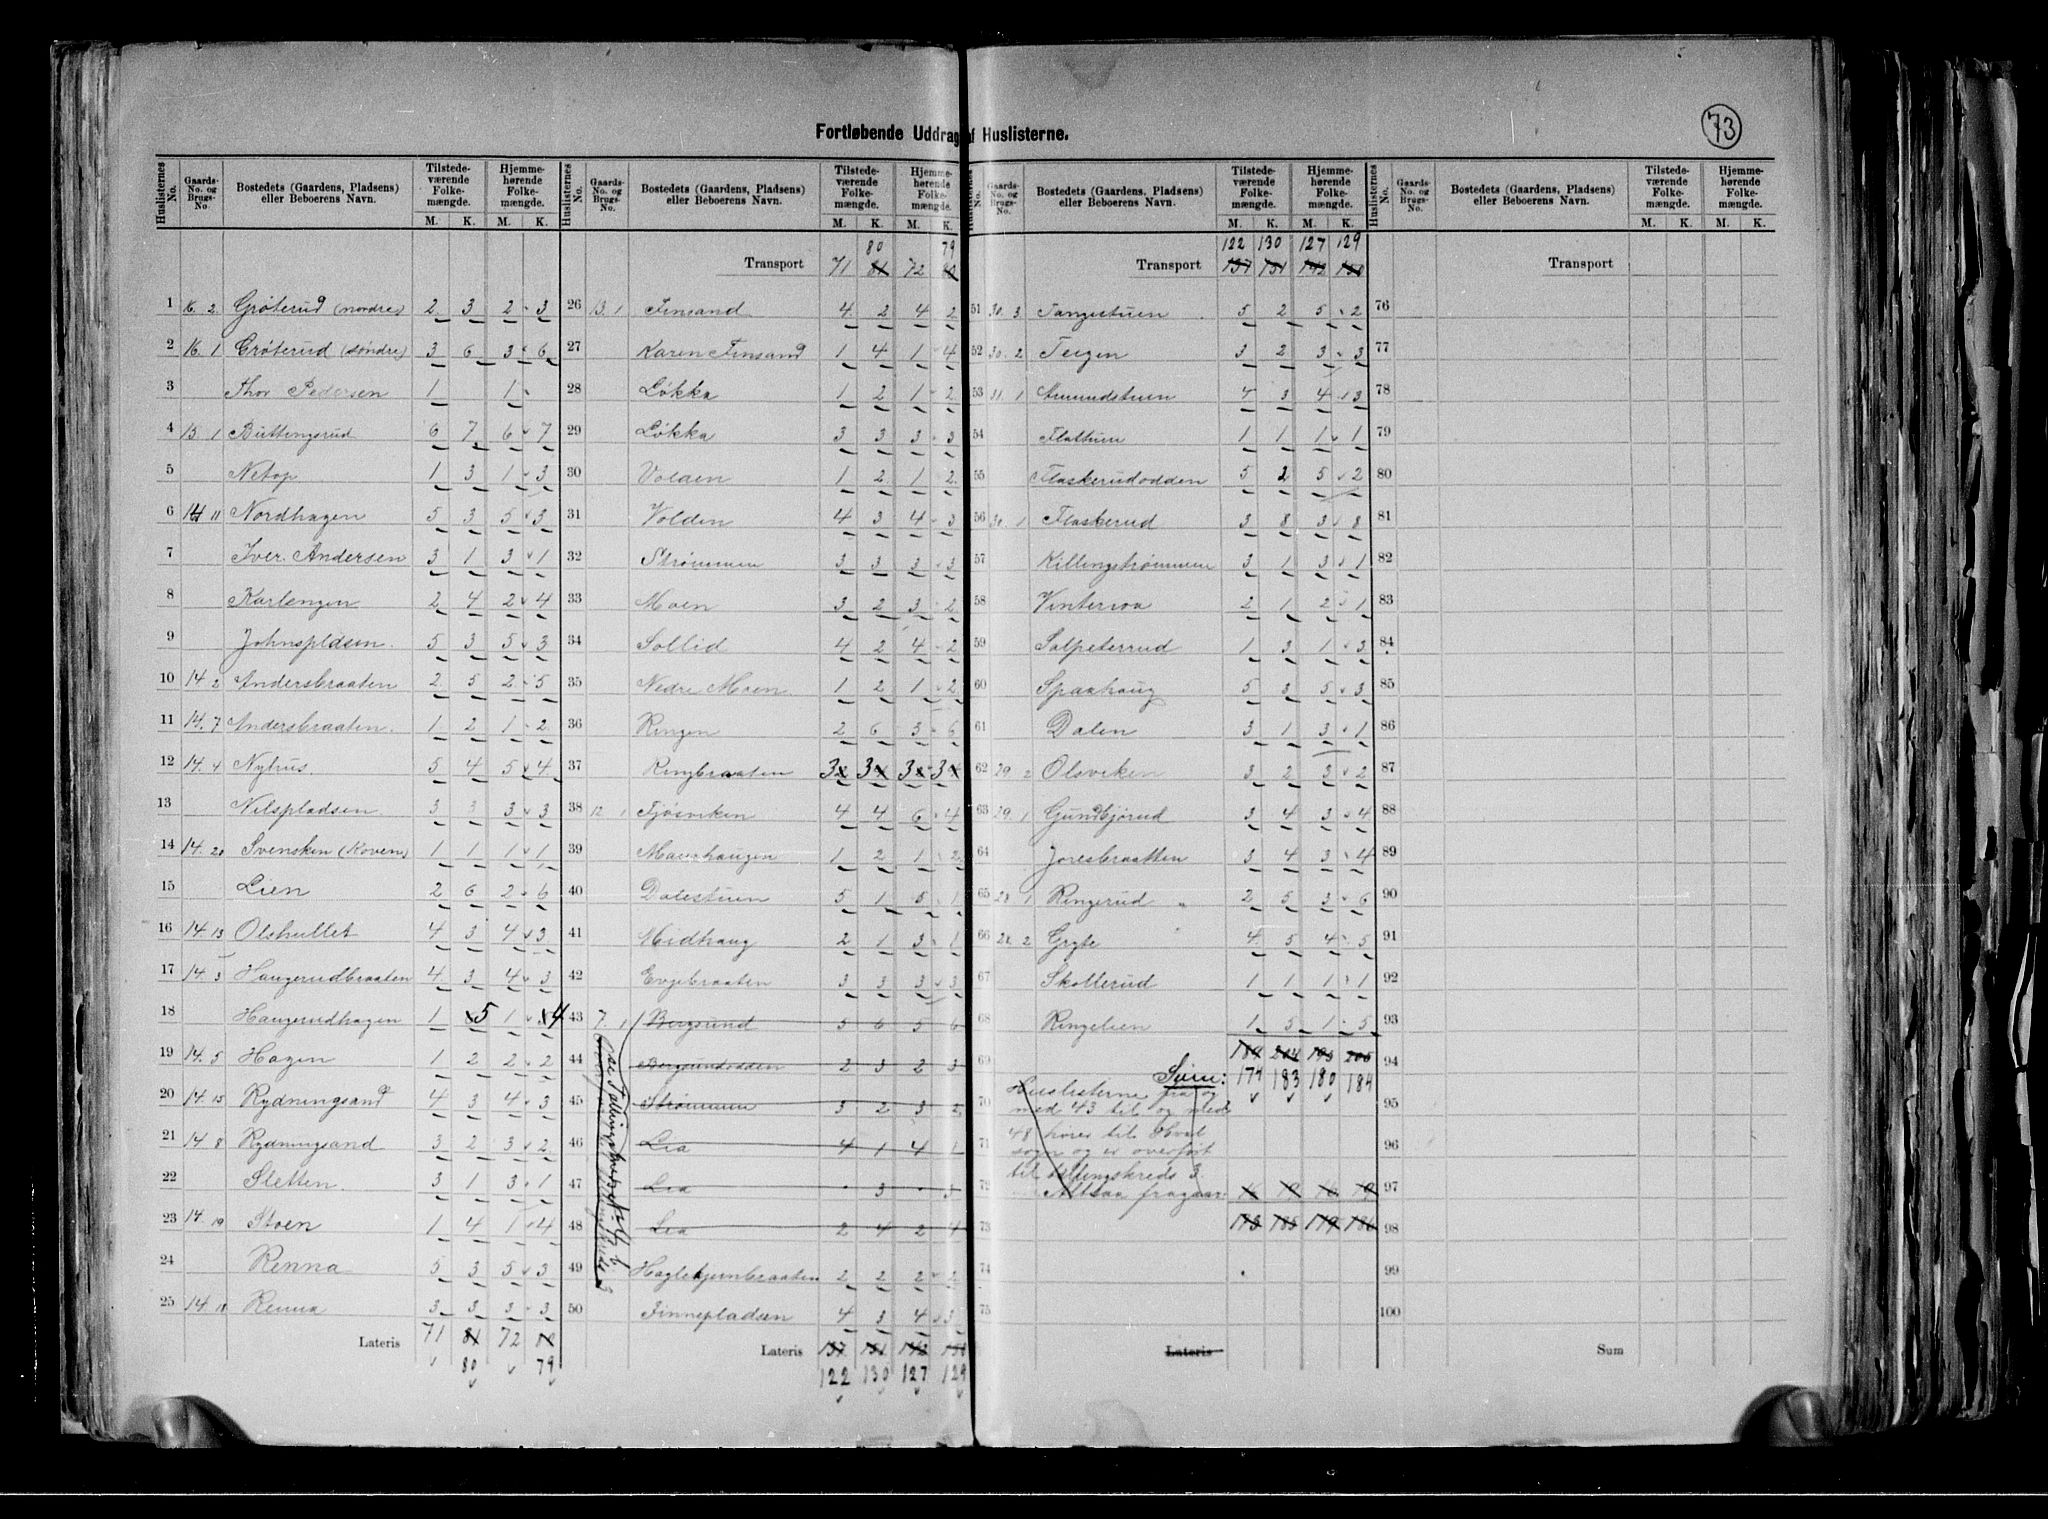 73
Fortløbende Uddrag af Huslisterne.
Huslisternes No. | Gaards-No. og Brugs-No. | Bostedets (Gaardens, Pladsens) eller Beboerens Navn. | Tilstedeværende Folkemængde. M. K. | Hjemmehørende Folkemængde. M. K.
1 16. 2. Grøterud (nordre) 2 3 2 3
2 16. 1 Grøterud (søndre) 3 6 3 6
3 Thor Pedersen 1 1
4 15. 1 Buttingsrud 6 7 6 7
5 Netop 1 3 1 3
6 14 11 Nordhagen 5 3 5 3
7 Iver Andersen 3 1 3 1
8 Karlengen 2 4 2 4
9 Johnspldsen. 5 3 5 3
10 14. 2 Andersbraaten 2 5 2 5
11 14. 7 Andersbraaten. 1 2 1 2
12 14. 4 Nyhus. 5 4 5 4
13 Nilspladsen 3 3 3 3
14 14. 20 Svensken (Koven) 1 1 1 1
15 Lien 2 6 2 6
16 14. 13 Olshullet 4 3 4 3
17 14. 3 Haugerudbraaten 4 3 4 3
18 Haugerudhagen 1 5 1 4
19 14. 5 Hagen 1 2 2 2
20 14. 15 Rydningsand 4 3 4 3
21 14. 8 Rydningsand 3 2 3 2
22 Sletten 3 1 3 1
23 14. 19 Stoen 1 4 1 4
24 Renna 5 3 5 3
25 14. 18 Renna 3 3 3 3
Lateris 71 81 72
80 79
Transport 71 81 72
80 79
26 13. 1 Finsand 4 2 4 2
27 Karen Finsand 1 4 1 4
28 Løkka 1 2 1 2
29 Løkka 3 3 3 3
30 Volden 1 2 1 2
31 Volden 4 3 4 3
32 Strømmen 3 3 3 3
33 Moen 3 2 3 2
34 Sollid 4 2 4 2
35 Nedre Moen 1 2 1 2
36 Ringen 2 6 3 6
37 Ringbraaten 3 3 3 3
38 12. 1 Tjøsviken 4 4 6 4
39 1 2 1 2
40 Dalestuen 5 1 5 1
41 Midhaug 2 1 3 1
42 Evjebraaten 3 3 3 3
43 7. 1 Bergsund 5 6 5 6
44 Bergsundodden 2 3 2 3
45 Strømmen 3 2 3 2
46 Lia 4 1 4 1
47 Lia 3 3
48 Lia 2 4 2 4
49 Hoglekjernbraaten 2 2 2 2
50 Finnepladsen 4 3 4 3
Lateris 137 151 142 150
122 130 127 129
122 130 127 129
Transport 137 151 142 150
51 30. 3 Tangestuen 5 2 5 2
52 30. 2 Teigen 3 2 3 3
53 31. 1 Amundstuen 4 3 4 3
54 Flattum 1 1 1 1
55 Flaskerudodden 5 2 5 2
56 30. 1 Flaskerud 3 8 3 8
57 Killingstrømmen 3 1 3 1
58 Vinterroa 2 1 2 1
59 Salpeterrud 1 3 1 3
60 Spaahaug 5 3 5 3
61 Dalen 3 1 3 1
62 29. 2 Olsviken 3 2 3 2
63 29. 1 Gundbjørud 3 4 3 4
64 Joresbraatten 3 4 3 4
65 28. 1 Ringerud 2 5 3 6
66 28. 2 Gryte 4 5 4 5
67 Skollerud 1 1 1 1
68 Ringelien 1 5 1 5
69 189 204 195 205
Sum: 174 183 180 184
70 Huslisterne fra og
med 43 til og med
71 48 hører til Hval
sogn og er overført
til tellingskreds 3
72 Altsaa fragaar: 16 19 16 19
73 173 185 179 186
74
75
Lateris
Transport
76
77
78
79
80
81
82
83
84
85
86
87
88
89
90
91
92
93
94
95
96
97
98
99
100
Sum